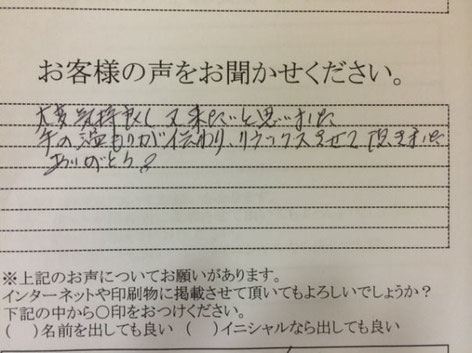 お客様の声をお聞かせください。
大変気持良く又来たいと思いました
手の温もりが伝わり、リラックスさせて頂きました
ありがとう!
※上記のお声についてお願いがあります。
インターネットや印刷物に掲載させて頂いてもよろしいでしょうか?
下記の中から〇印をおつけください。
( )名前を出しても良い ( )イニシャルなら出しても良い